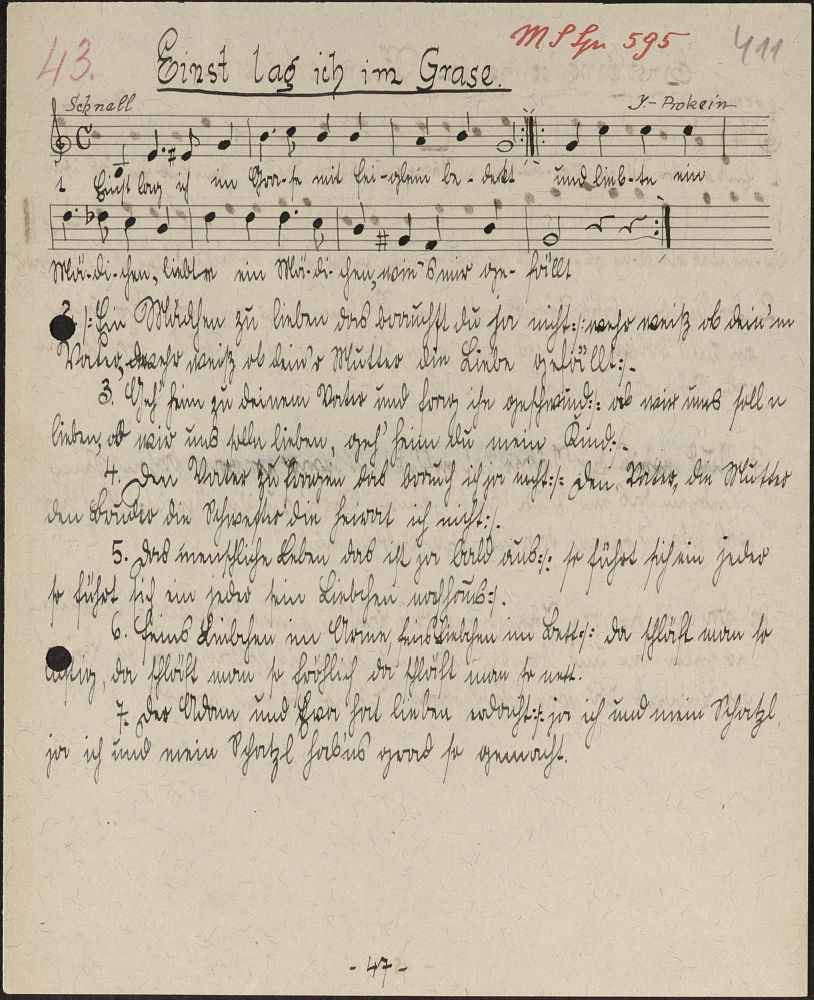 43.
MS Spr 595
411
Einst lag ich im Grase.
Schnell
J. Prokein
1 Einst lag ich im Gra-se mit Vei-glein be-dekt und lieb-te ein
Mä-di-chen, liebte ein Mä-di-chen, wie's mir ge-fällt
2. /: Ein Mädchen zu lieben das brauchst du ja nicht :/: wehr weiß ob dein'm
Vater, wehr weiß ob dein'r Mutter die Liebe gefällt :/.
3. Geh' heim zu deinem Vater und frag ihn geschwind :: ob wir uns soll'n
lieben, ob wir uns solln lieben, geh' heim du mein Kind :.
4. Den Vater zu fragen das brauch ich ja nicht :/: Den Vater, die Mutter
den Bruder die Schwester die heirat ich nicht :/.
5. Das menschliche Leben das ist ja bald aus :/: so führt sich ein jeder
so führt sich ein jeder sein Liebchen nachhaus :/.
6. Feins Liebchen im Arme, feins Liebchen im Bett :/: da schläft man so
lustig, da schläft man so fröhlich da schläft man so nett.
7. Der Adam und Eva hat lieben erdacht :/: ja ich und mein Schatzl,
ja ich und mein Schatzl hab'ns grad so gemacht.
- 47 -